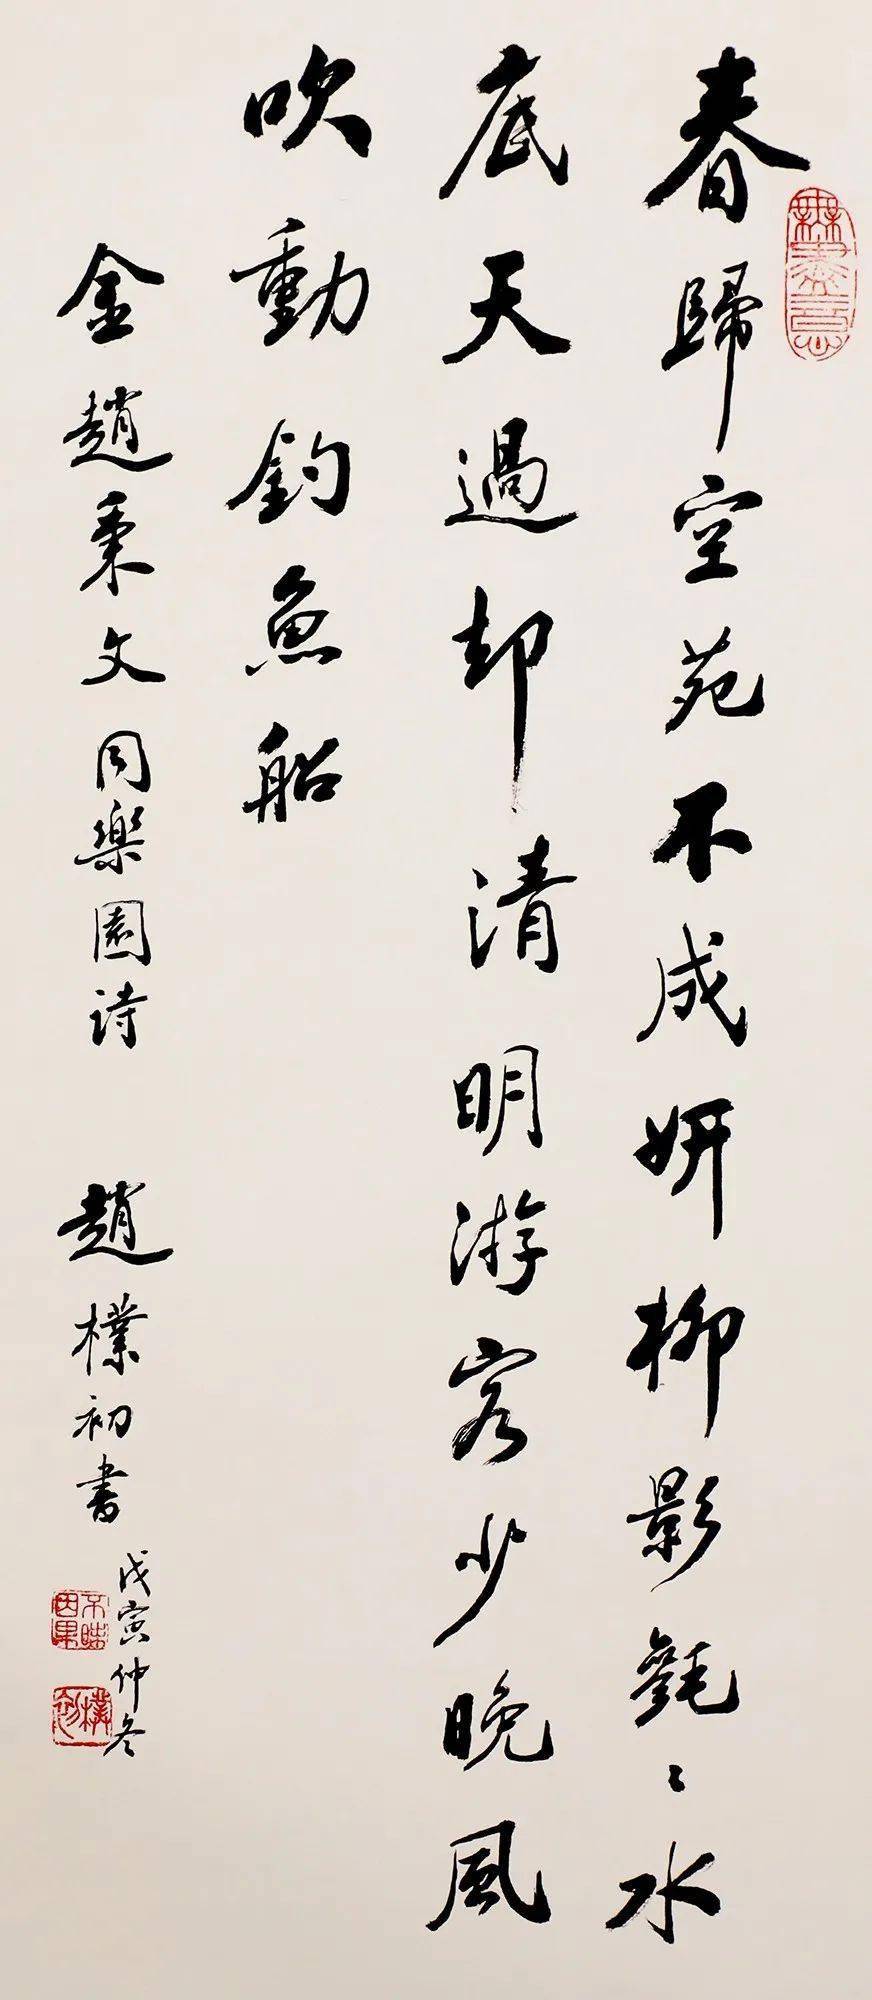 春歸空苑不成妍柳影毿〻水
底天過却清明游客少晚風
吹動釣魚船
金趙秉文同樂園詩 趙樸初書
戊寅仲冬
無盡意
不昧因果
樸初